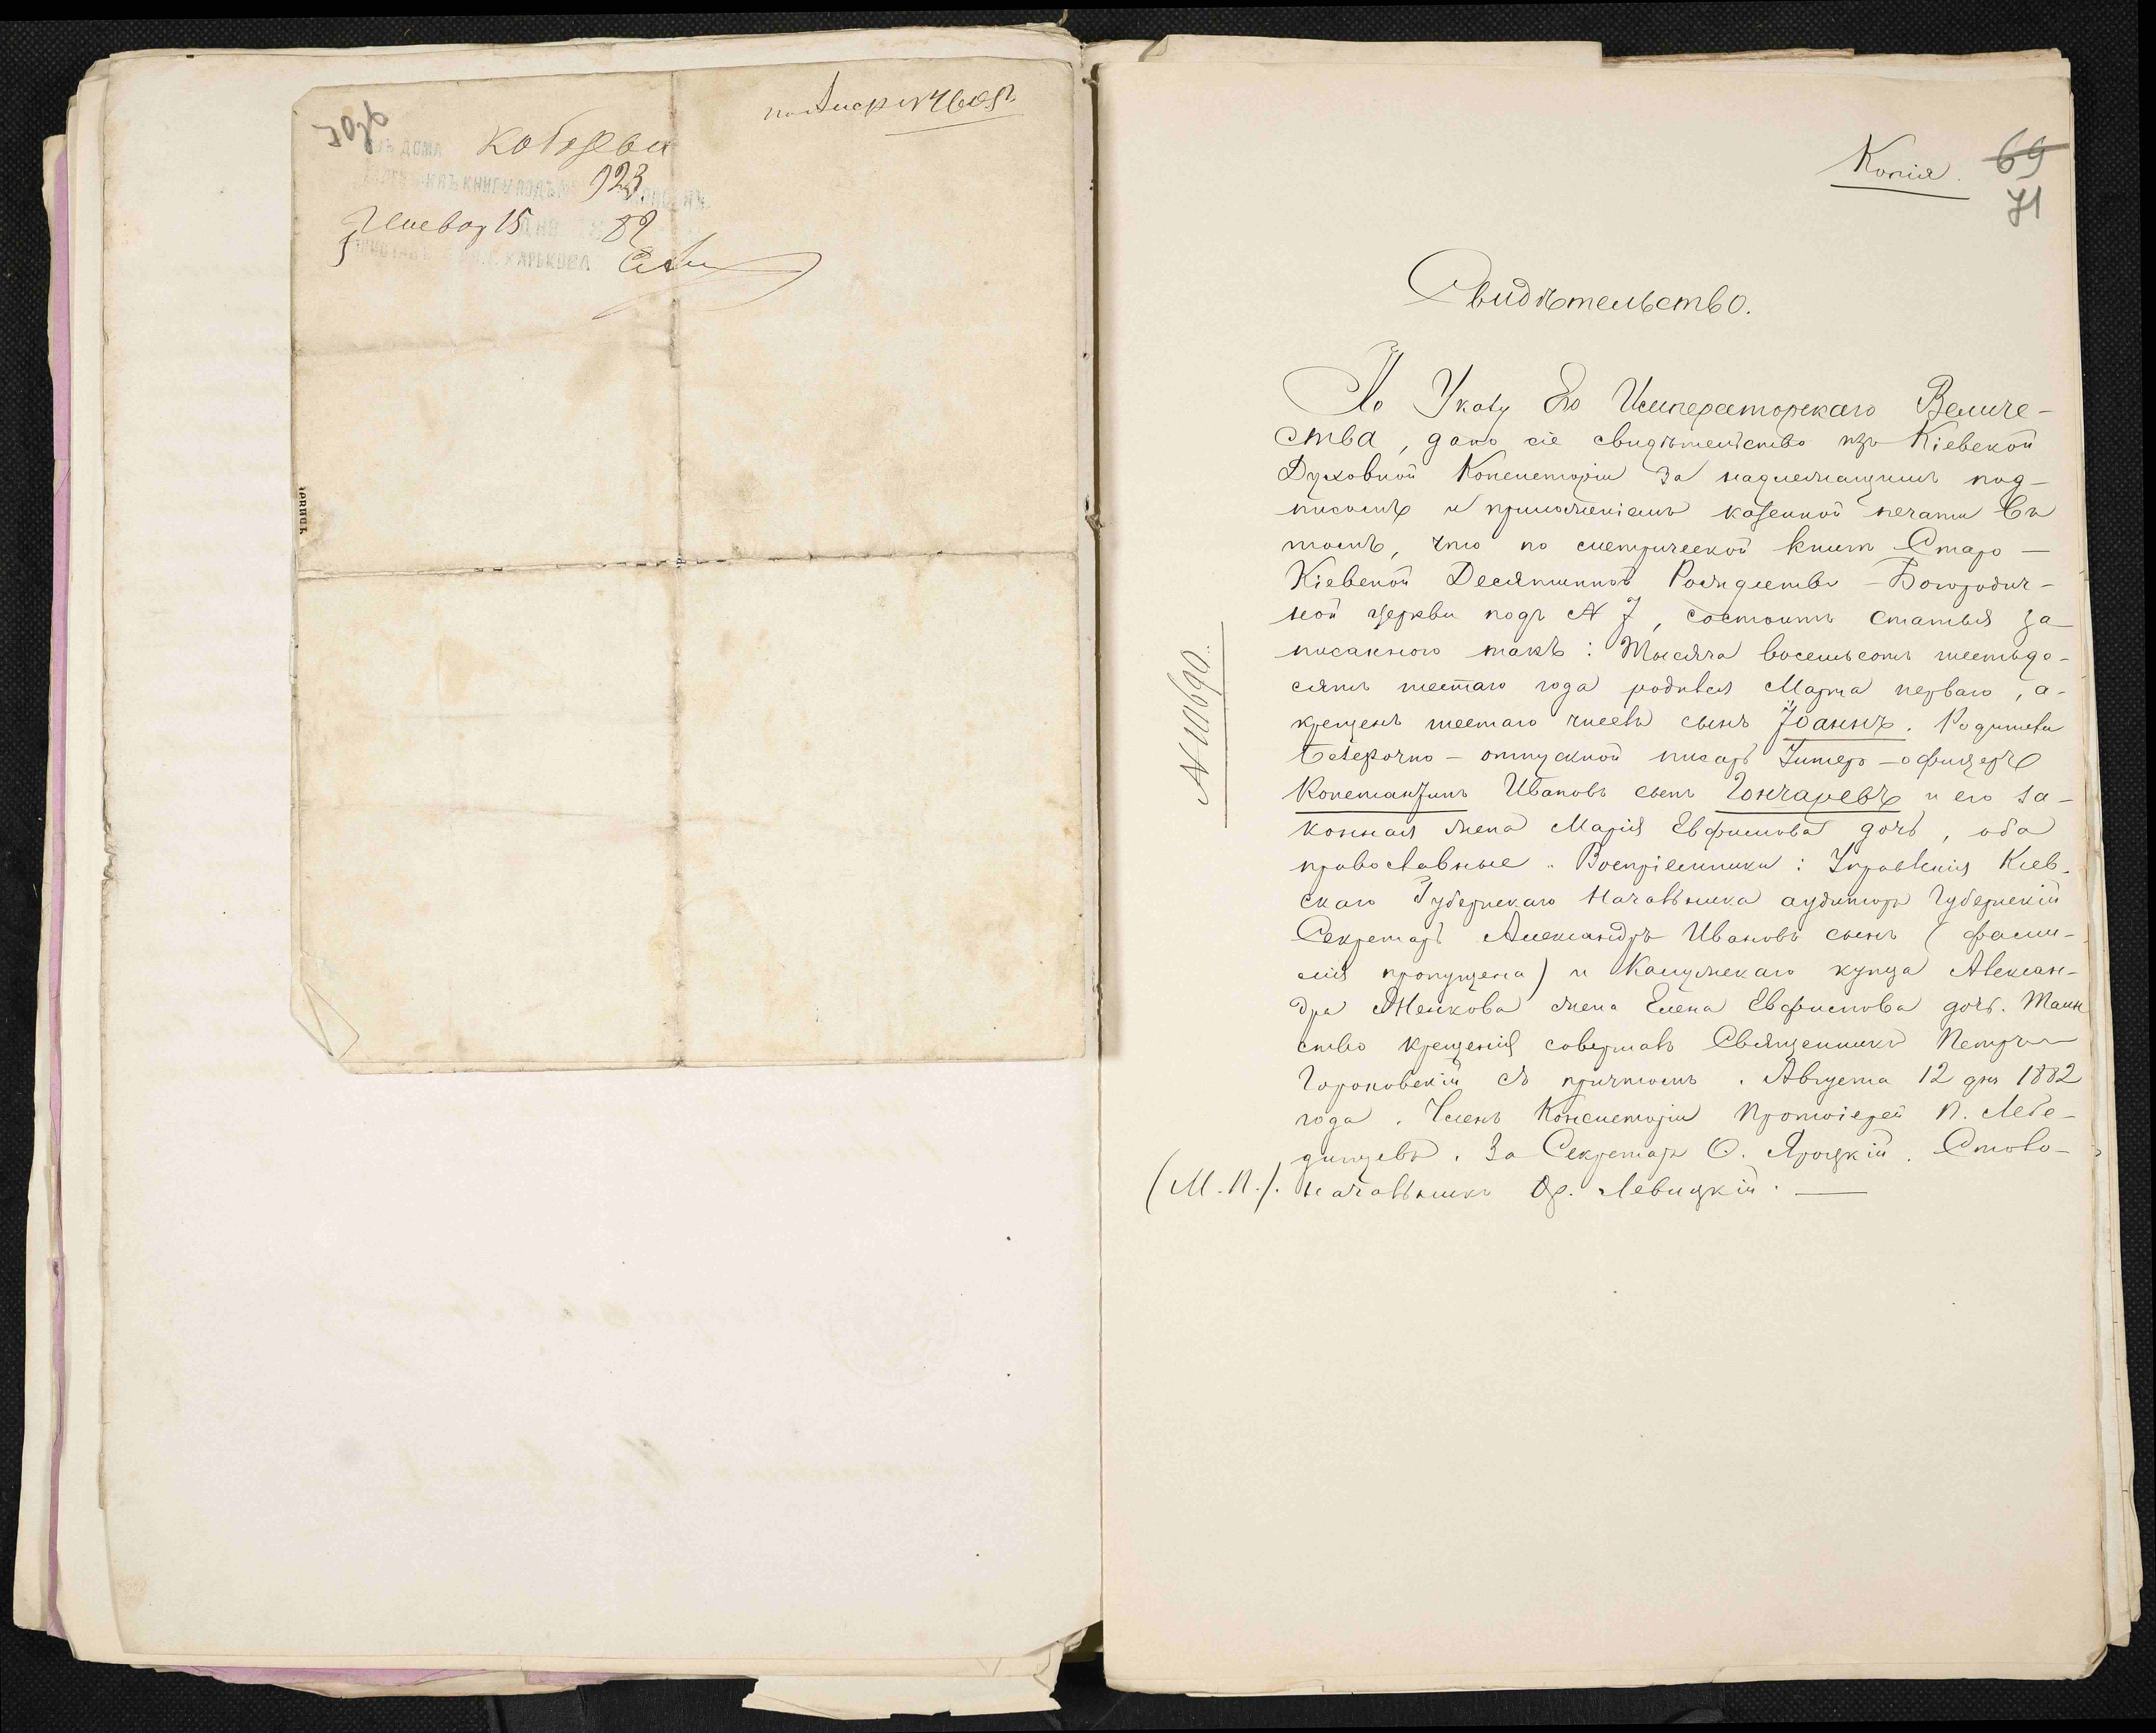 по Лист № 4605
ДОМА Кобзева
КНИГУ ПОДЪ № 923
Генвар 15 ДНЯ 82
ПРИСТАВЪ Г. ХАРЬКОВА
Копія.
69
71
Свидѣтельство.
По Указу Его Императорскаго Величе-
ства, дано сіе свидѣтельство изъ Кіевской
Духовной Консисторіи за надлежащимъ под-
писомъ и приложеніемъ казенной печати въ
томъ, что по метрической книгѣ Старо-
Кіевской Десятинной Рождество-Богородич-
ной церкви подъ № 7, состоитъ статья за-
писанного такъ: Тысяча восемьсотъ шестьде-
сятъ шестаго года родился Марта перваго, а-
крещенъ шестаго числа сынъ Іоаннъ. Родители
безсрочно-отпускной писарь Унтеръ-офицеръ
Константинъ Ивановъ сынъ Гончаревъ и его за-
конная жена Марія Евфимова дочь, оба
православные. Воспріемники: Управленія Кіев-
скаго Губернскаго Начальника аудиторъ Губернскій
Секретарь Александръ Ивановъ сынъ (фами-
лія пропущена) и Калужскаго купца Алексан-
дра жена Елена Евфимова дочь. Таин
ство крещенія совершалъ Священникъ Петръ
съ причтомъ. Августа 12 дня 1882
года. Членъ Консисторіи Протоіерей П. Лебе-
динцевъ. За Секретаря О. Яроцкій. Столо-
(М.П.). начальникъ Ор. Левицкій. —
№ 11690.